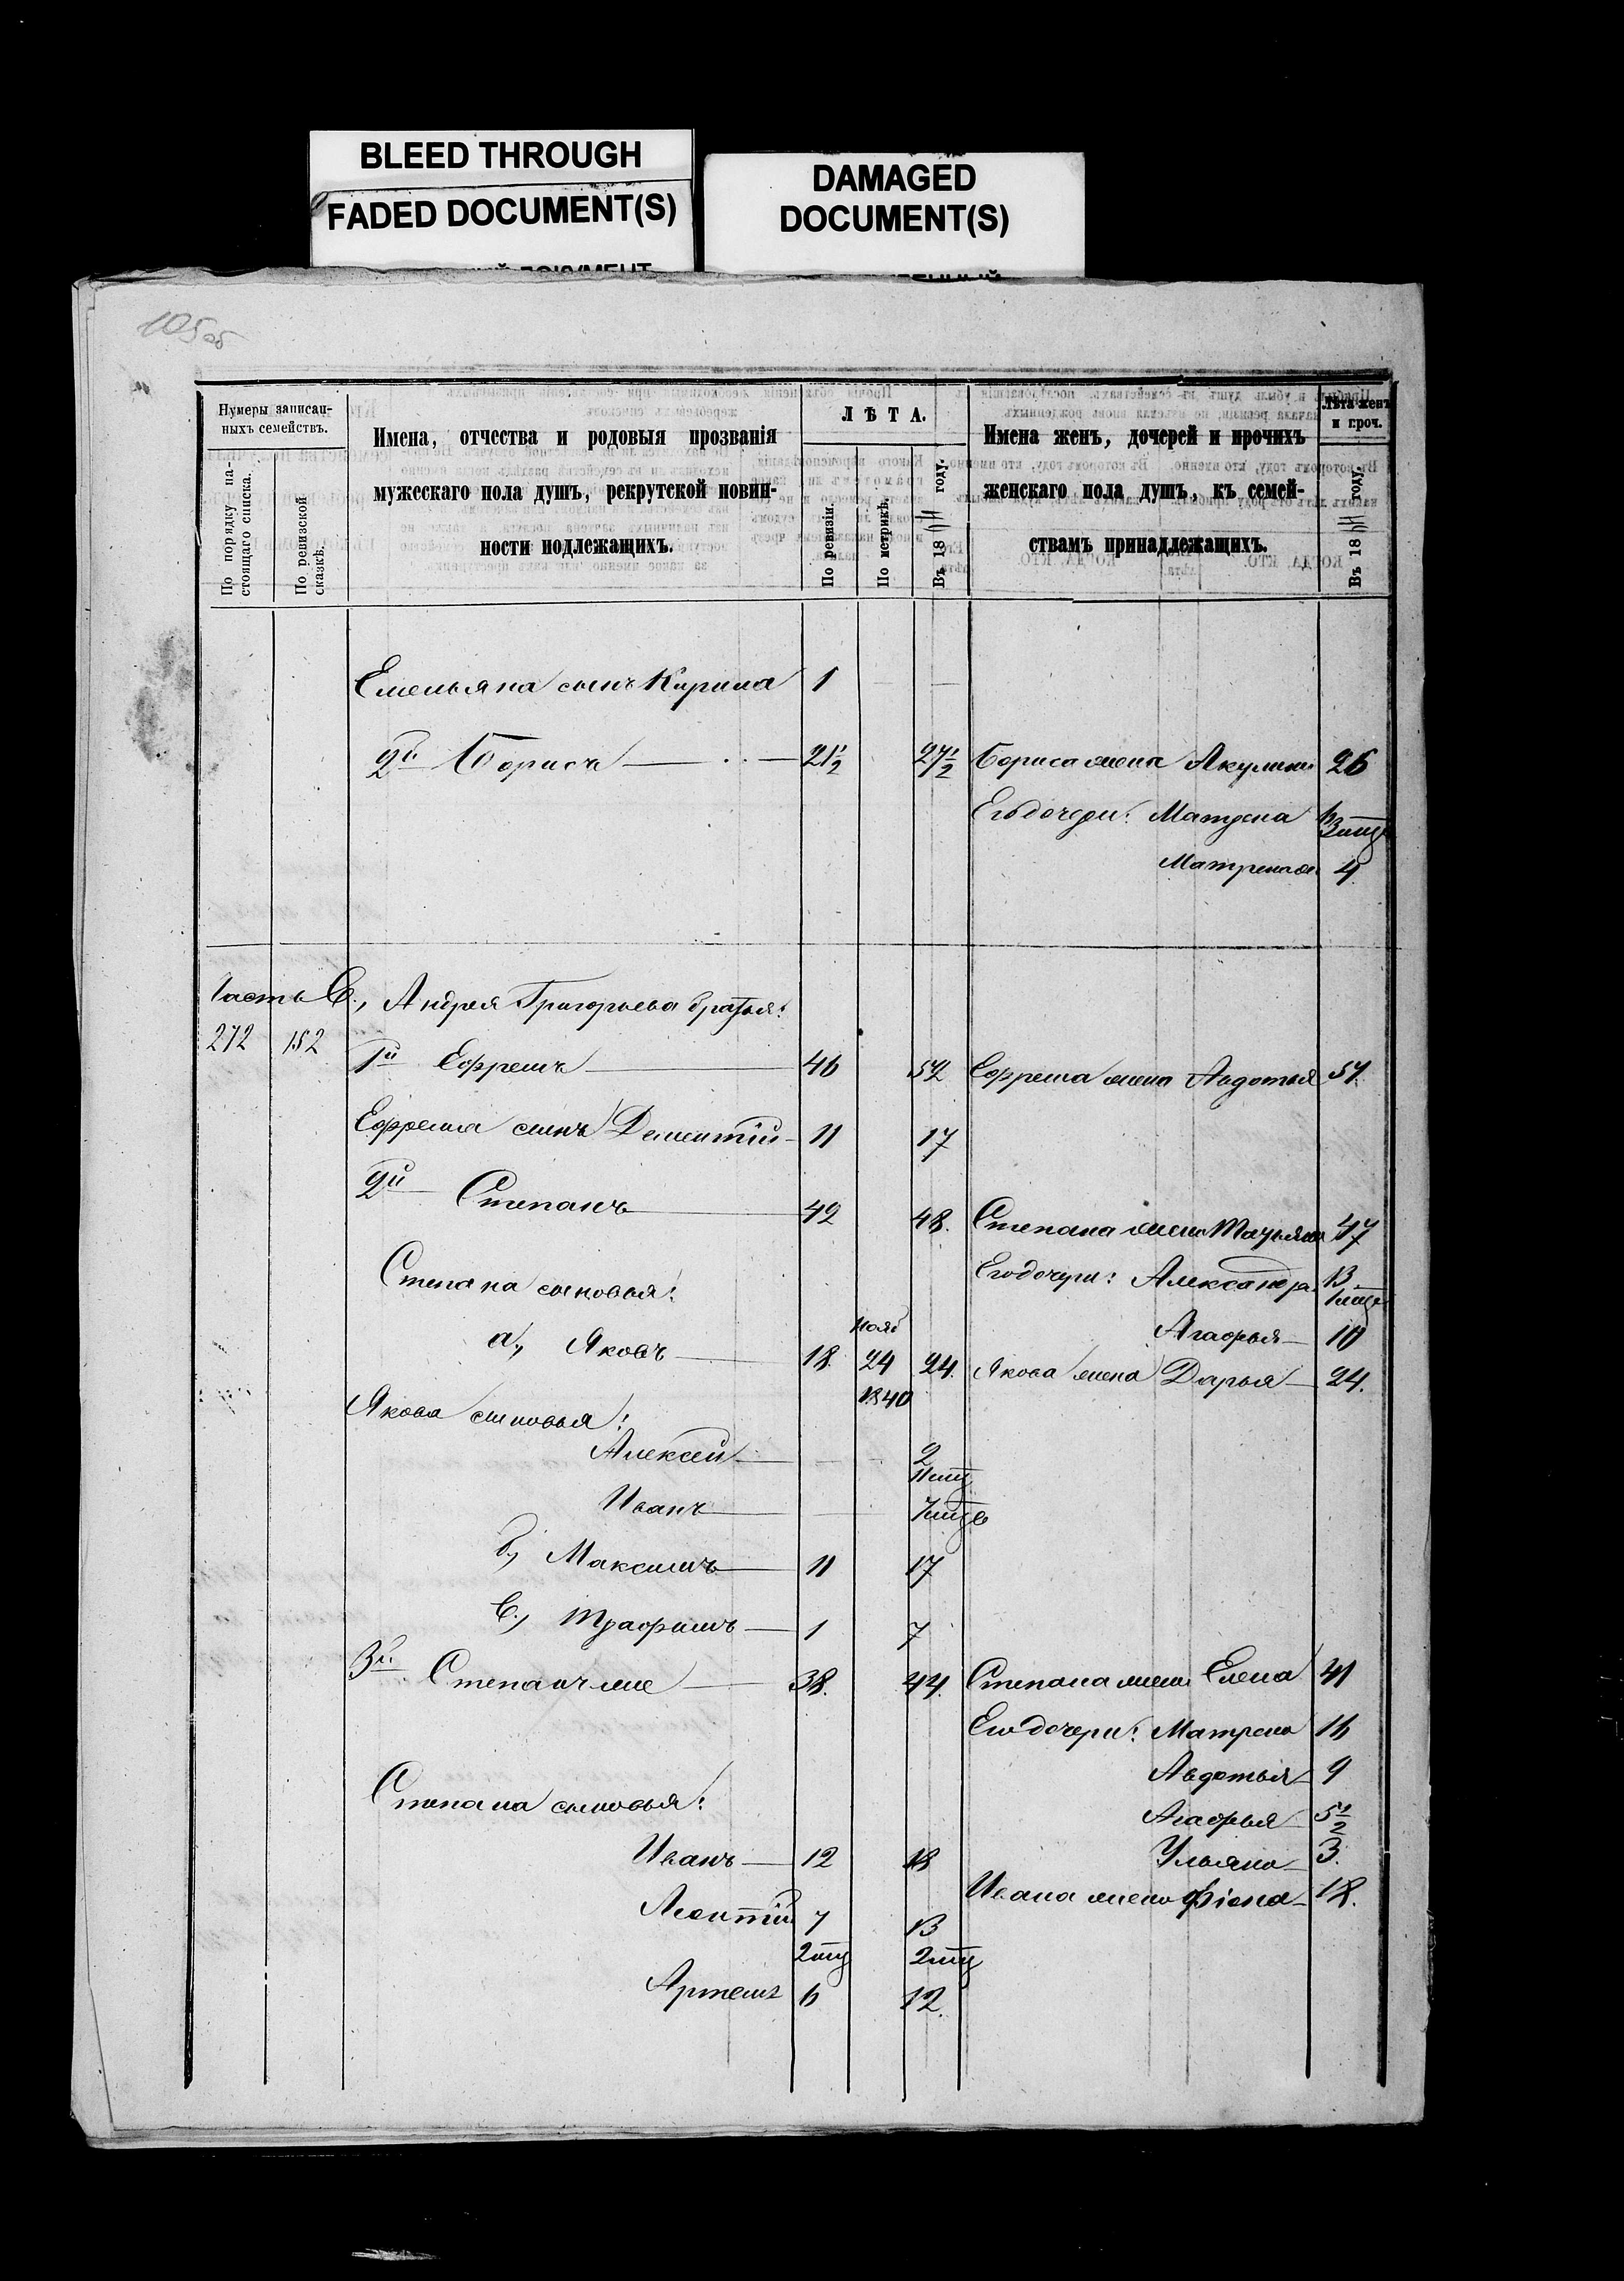 BLEED THROUGH
FADED DOCUMENT(S)
DAMAGED
DOCUMENT(S)
105об
Нумеры записан-
ныхъ семействъ.
По порядку на-
стоящаго списка.
По ревизской
сказкѣ.
Имена, отчества и родовыя прозванія
мужескаго пола душъ, рекрутской повин-
ности подлежащихъ.
ЛѢТА.
По ревизіи.
По метрикѣ.
Въ 18 году.
Имена женъ, дочерей и прочихъ
женскаго пола душъ, къ семей-
ствамъ принадлежащихъ.
Лѣта женъ
и проч.
Въ 18 году.
Емельяна сынъ Кирила 1
2й Борисъ 21½ 27½ Бориса жена Акулина 26
Его дочери: Матрена 6
3 мц
Матрена же 4
Часть В., Андрея Григорьева братья:
272 152
1й Ефремъ 46 52 Ефрема жена Авдотья 51
Ефрема сынъ Дементій 11 17
2й Степанъ 42 48. Степана жена Татьяна 47
Степана сыновья: Его дочери: Александра 13
1 мц
Агафья 10
а., Яковъ 18. Нояб 24 1840 24. Якова жена Дарья 24.
Якова сыновья:
Алексей 2
11 мц
Иванъ 7 мцв
б, Максимъ 11 17
В., Трафимъ 1 7
3й Степанъ же 38. 44. Степана жена Елена 41
Его дочери: Матрена 16
Авдотья 9
Степана сыновья:
Агафья 5½
Иванъ 12 18 Ульяна 3.
Ивана жена Фіона 18.
Леонтій 7 13
2 мц 2 мц
Артемъ 6 12.